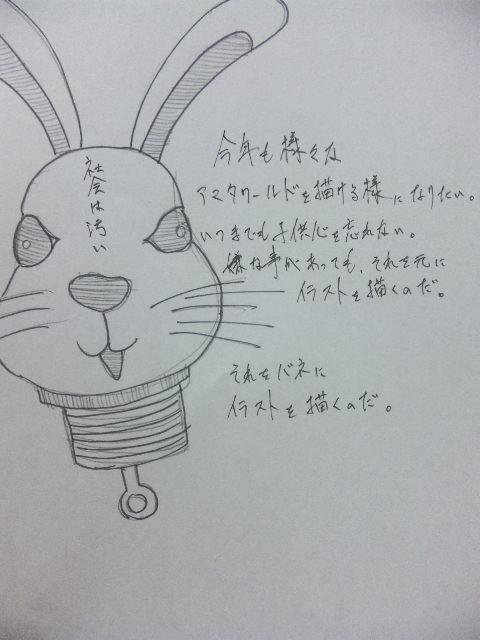 社会は汚い
今年も様々な
アマタワールドを描ける様になりたい。
いつまでも子供心を忘れない。
嫌な事があっても、それを元に
イラストを描くのだ。
それをバネに
イラストを描くのだ。